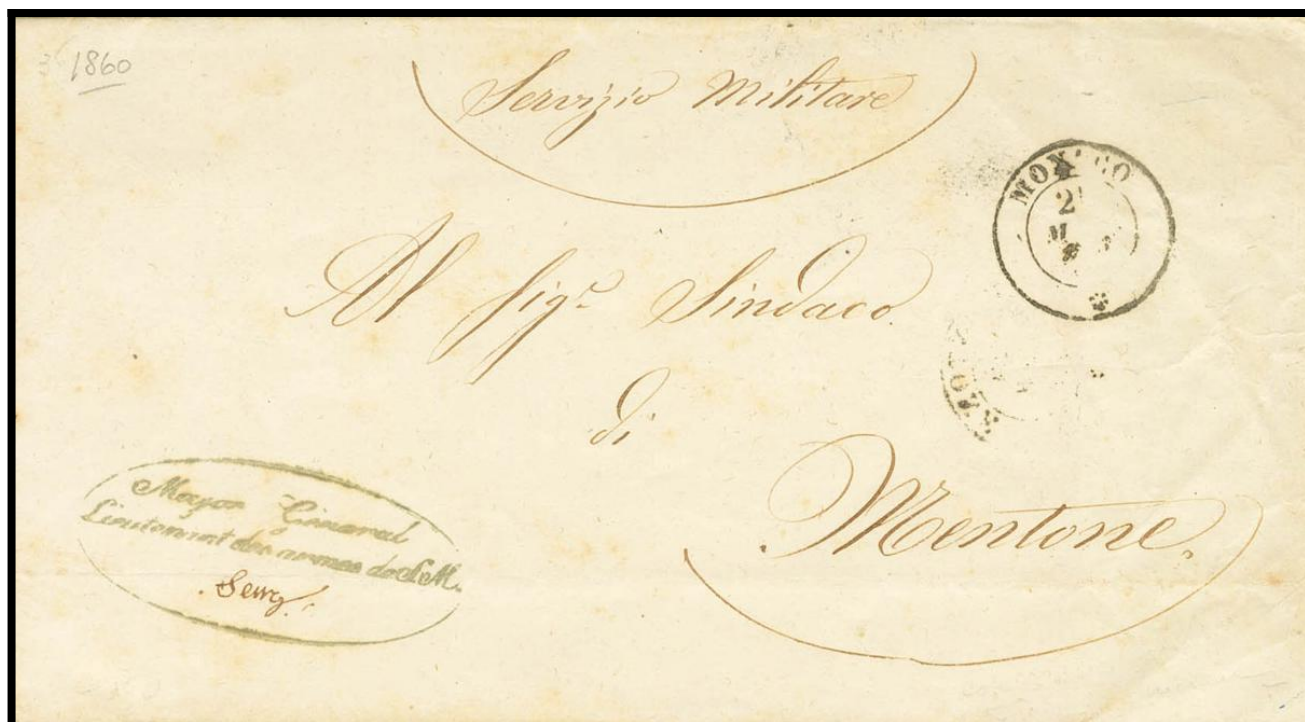 1860
Servizio Militare
MONACO
2
M
Al Sigr Sindaco
di
Mentone.
Mayor General
Lieutennat des armes de S.M.